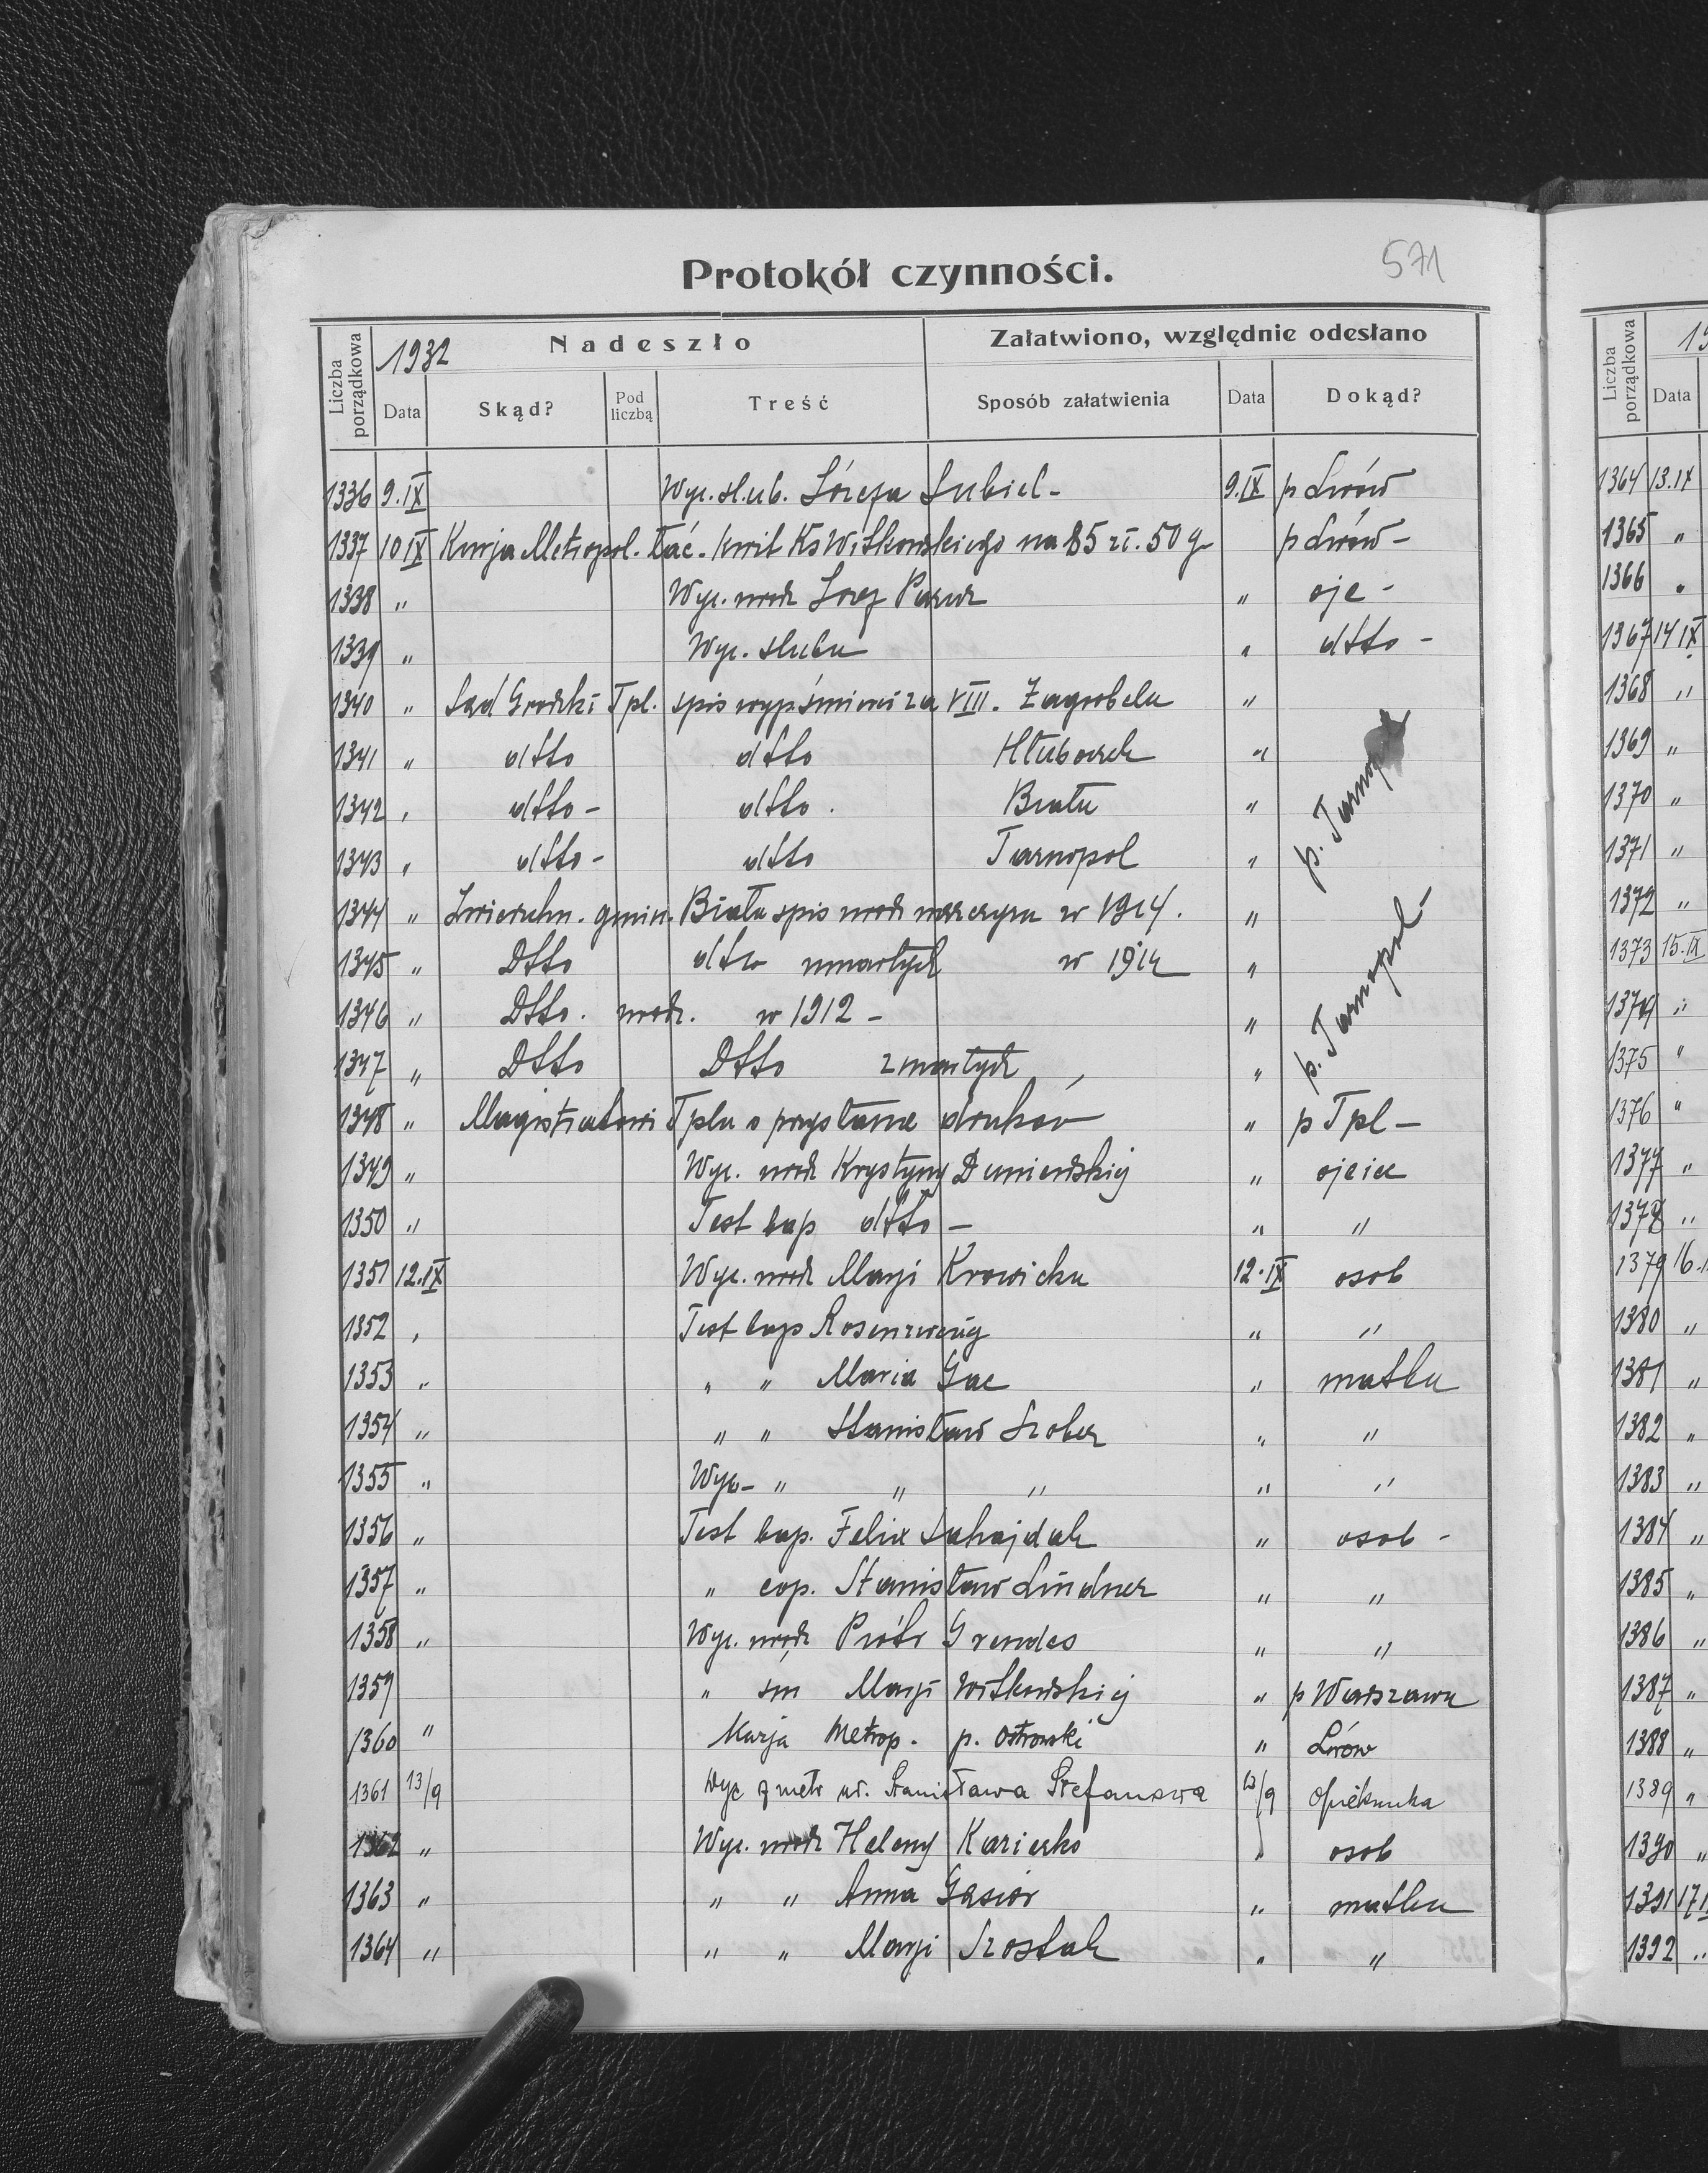 Protokół czynności.
571
Liczba porządkowa
1932
Nadeszło
Załatwiono, względnie odesłano
Data
Skąd?
Pod liczbą
Treść
Sposób załatwienia
Data
Dokąd?
1336 9.IX Wyc. slub. Józefa 9.IX p Lwów
1337 10 IX Kurja Metropol. łać. kwit Ks Witkowskiego na 85 zł. 50 g p Lwów -
1338 " Wyc. urodz Józef " ojc -
1339 " Wyc. slubu " dtto -
1340 " Sąd Grodzki Tpl. spis za VIII. Zagrobela "
1341 " dtto dtto Hłuboczek "
1342 " dtto - dtto. Biała " p. Tarnopol
1343 " dtto - dtto Tarnopol "
1344 " Zwierzchn. gmin. Biała spis urodz mężczyzn w 1914. "
1345 " Dtto dtto umarłych w 1914 "
1346 " Dtto. urodz. w 1912 - " p. Tarnopol -
1347 " Dtto Dtto zmarłych "
1348 " Magistratowi Tplu o przysłanie druków " p Tpl -
1349 " Wyc. urodz Krystyny " ojciec
1350 " Test bap dtto - " "
1351 12.IX Wyc. urodz Marji Krowicka 12.IX osob
1352 " Test bap Rosenzweig " "
1353 " " " Maria Gac " matka
1354 " " " Stanisław Szober " "
1355 " Wyc - " " " " "
1356 " Test bap. Felix Sahajdak " osob -
1357 " " cop. Stanisław Lindner " "
1358 " Wyc. urodz Piotr Grendes " "
1359 " sm Marji Witkowskiej " p Warszawa
1360 " Kurja Metrop. p. Ostrowski " Lwów
1361 13/9 Wyc z metr ur. Stanisława 13/9 Opiekunka
1362 " Wyc. urodz Heleny " osob
1363 " " " Anna Gąsior " matka
1364 " " " Marji Szostak " "
Liczba porządkowa
Data
1364 13.IX
1365 "
1366 "
1367 14 IX
1368 "
1369 "
1370 "
1371 "
1372 "
1373 15.IX
1374 "
1375 "
1376 "
1377 "
1378 "
1379 16.
1380 "
1381 "
1382 "
1383 "
1384 "
1385 "
1386 "
1387 "
1388 "
1389 "
1390 "
1391 17
1392 "